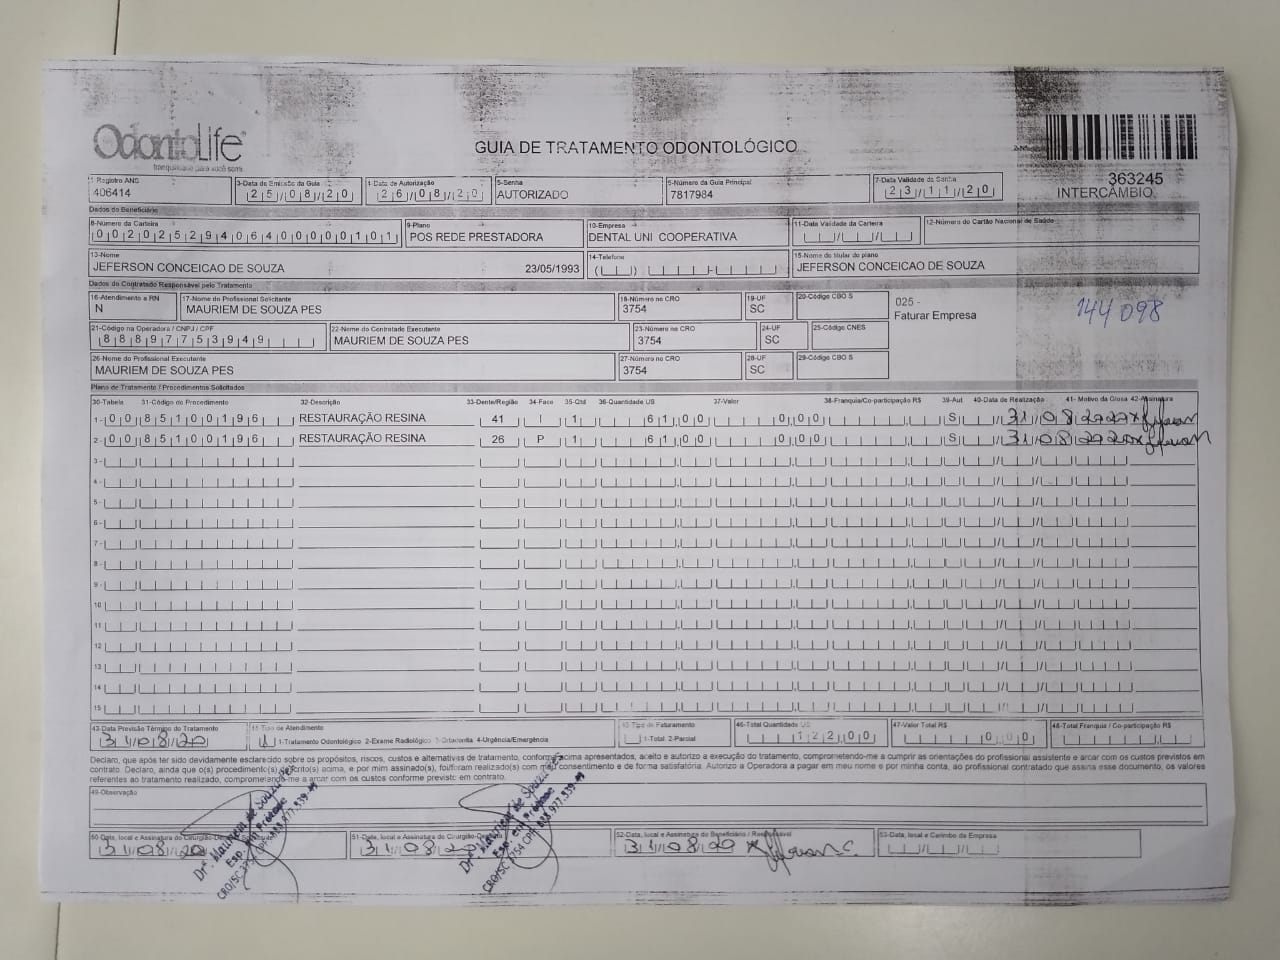 OdontoLife
tranquilidade para você sorrir
GUIA DE TRATAMENTO ODONTOLÓGICO
363245
INTERCÂMBIO
1-Registro ANS
406414
3-Data de Emissão da Guia
25/08/20
4-Data de Autorização
26/08/20
5-Senha
AUTORIZADO
6-Número da Guia Principal
7817984
7-Data Validade da Senha
23/11/20
Dados do Beneficiário
8-Número da Carteira
00202529406400000101
9-Plano
POS REDE PRESTADORA
10-Empresa
DENTAL UNI COOPERATIVA
11-Data Validade da Carteira
12-Número do Cartão Nacional de Saúde
13-Nome
JEFERSON CONCEICAO DE SOUZA 23/05/1993
14-Telefone
15-Nome do titular do plano
JEFERSON CONCEICAO DE SOUZA
Dados do Contratado Responsável pelo Tratamento
16-Atendimento a RN
N
17-Nome do Profissional Solicitante
MAURIEM DE SOUZA PES
18-Número no CRO
3754
19-UF
SC
20-Código CBO S
025 -
Faturar Empresa
144098
21-Código na Operadora / CNPJ / CPF
88897753949
22-Nome do Contratado Executante
MAURIEM DE SOUZA PES
23-Número no CRO
3754
24-UF
SC
25-Código CNES
26-Nome do Profissional Executante
MAURIEM DE SOUZA PES
27-Número no CRO
3754
28-UF
SC
29-Código CBO S
Plano de Tratamento / Procedimentos Solicitados
30-Tabela 31-Código do Procedimento 32-Descrição 33-Dente/Região 34-Face 35-Qtd 36-Quantidade US 37-Valor 38-Franquia/Co-participação R$ 39-Aut 40-Data de Realização 41- Motivo da Glosa 42-Assinatura
1- 00 85100196 RESTAURAÇÃO RESINA 41 I 1 61,00 0,00 S 31/08/2020
2- 00 85100196 RESTAURAÇÃO RESINA 26 P 1 61,00 0,00 S 31/08/2020
3-
4-
5-
6-
7-
8-
9-
10
11
12
13
14
15
43-Data Previsão Término do Tratamento
31/08/20
44-Tipo de Atendimento
1 1-Tratamento Odontológico 2-Exame Radiológico 3-Ortodontia 4-Urgência/Emergência
45-Tipo de Faturamento
1-Total 2-Parcial
46-Total Quantidade US
122,00
47-Valor Total R$
0,00
48-Total Franquia / Co-participação R$
Declaro, que após ter sido devidamente esclarecido sobre os propósitos, riscos, custos e alternativas de tratamento, conforme acima apresentados, aceito e autorizo a execução do tratamento, comprometendo-me a cumprir as orientações do profissional assistente e arcar com os custos previstos em
contrato. Declaro, ainda que o(s) procedimento(s) descrito(s) acima, e por mim assinado(s), foi/foram realizado(s) com meu consentimento e de forma satisfatória. Autorizo a Operadora a pagar em meu nome e por minha conta, ao profissional contratado que assina esse documento, os valores
referentes ao tratamento realizado, comprometendo-me a arcar com os custos conforme previsto em contrato.
49-Observação
50-Data, local e Assinatura do Cirurgião-Dentista
31/08/20
Drª. Mauriem de Souza Pes
Esp. em Prótese
CRO/SC 3754 CPF 888.977.539-49
51-Data, local e Assinatura do Cirurgião-Dentista
31/08/20
Drª. Mauriem de Souza Pes
Esp. em Prótese
CRO/SC 3754 CPF 888.977.539-49
52-Data, local e Assinatura do Beneficiário / Responsável
31/08/20
53-Data, local e Carimbo da Empresa